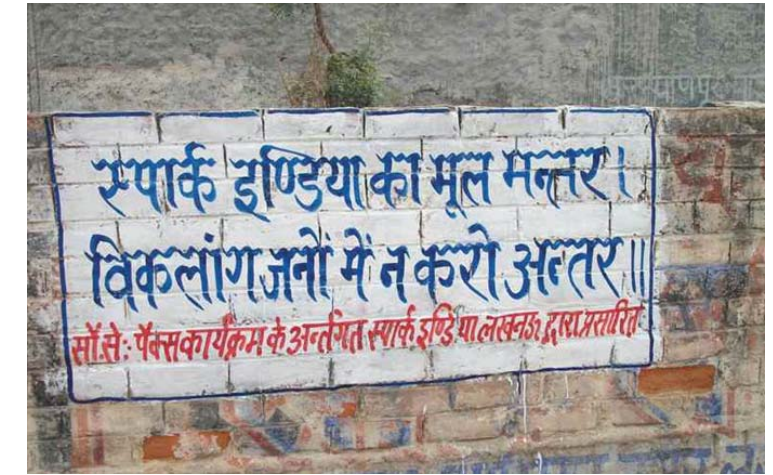 स्पार्क इण्डिया का मूल मन्तर।
विकलांग जनों में न करो अन्तर॥
सौ.से: पैक्स कार्यक्रम के अर्न्तगत स्पार्क इण्डिया लखनऊ द्वारा प्रसारित